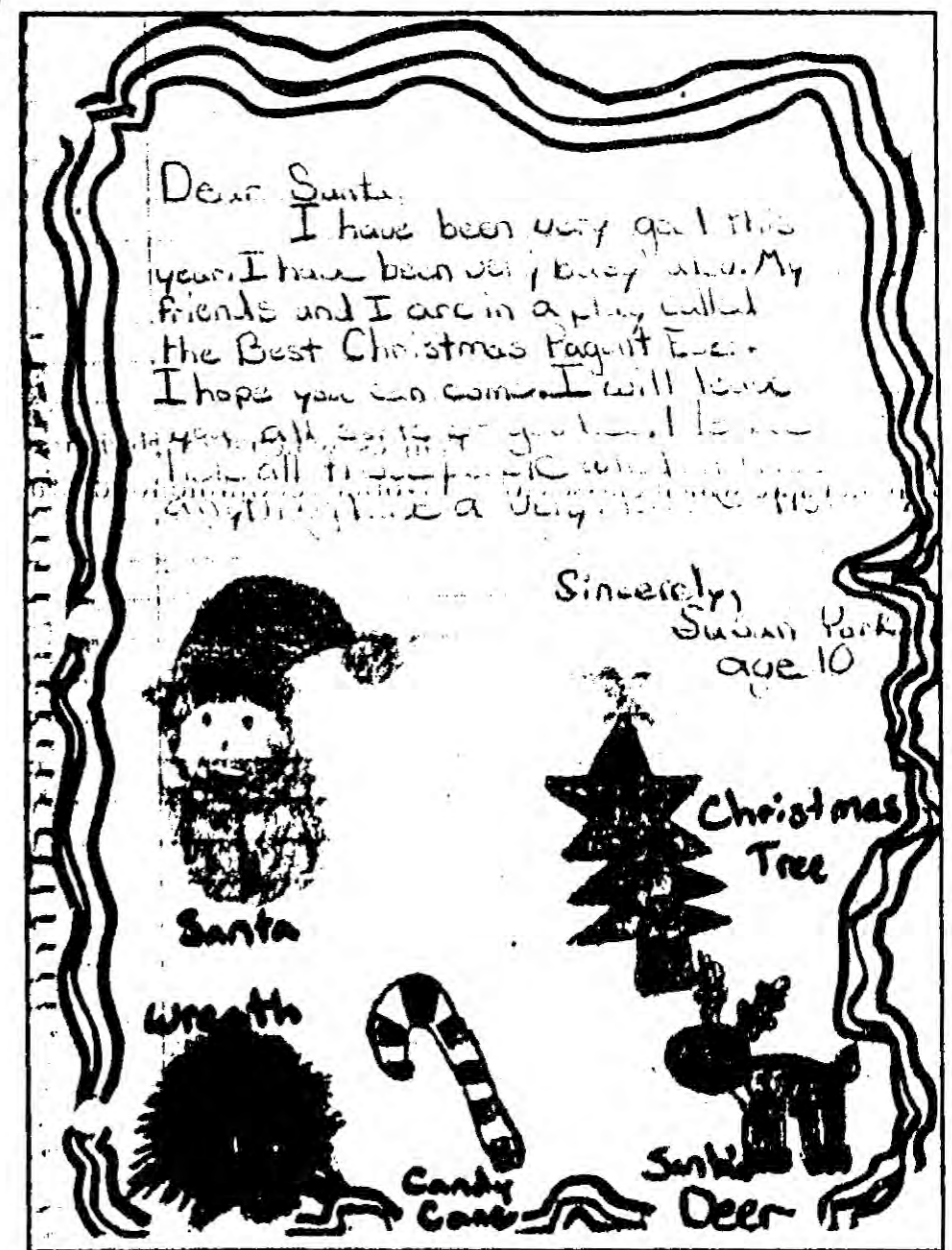 Dear Santa,
I have been very good this
year. I have been very busy also. My
friends and I are in a play called
the Best Christmas Pagint Ever.
I hope you can come. I will leave
you all
all
anything a very
Sincerely,
Susan York
age 10
Santa
Christmas
Tree
wreath
Candy
Cane
Santa's
Deer